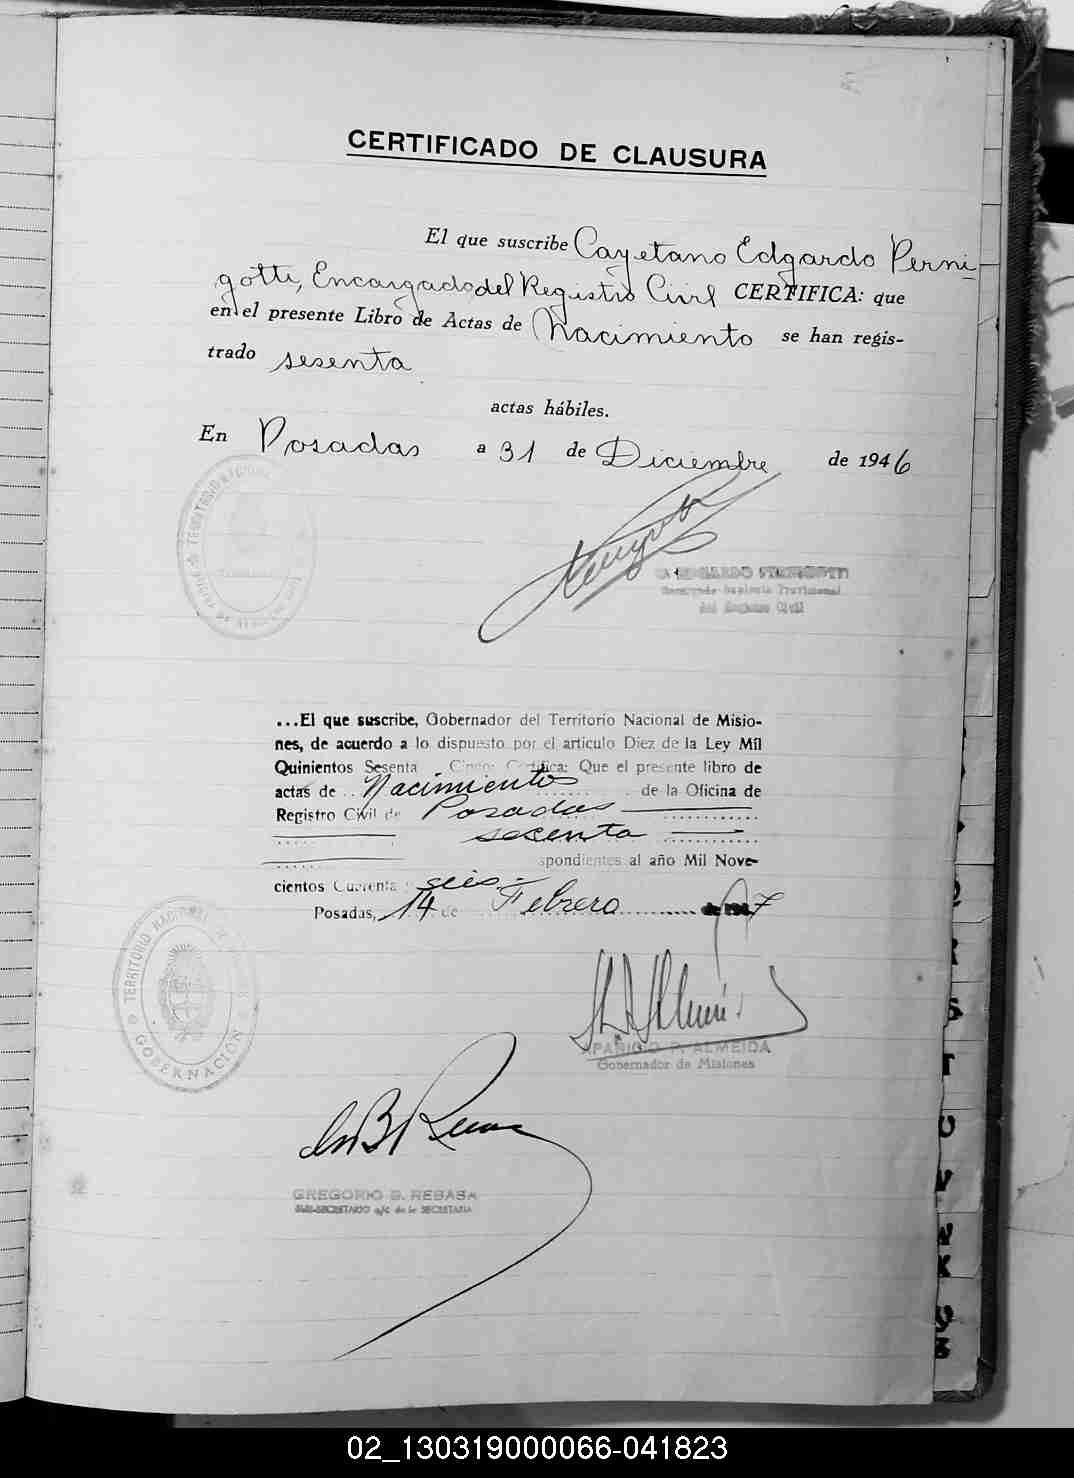 CERTIFICADO DE CLAUSURA
El que suscribe Cayetano Edgardo Perni-
gotti, Encargado del Registro Civil CERTIFICA: que
en el presente Libro de Actas de Nacimiento se han regis-
trado sesenta
actas hábiles.
En Posadas a 31 de Diciembre de 1946
EDGARDO PERNIGOTTI
del Registro Civil
...El que suscribe, Gobernador del Territorio Nacional de Misio-
nes, de acuerdo a lo dispuesto por el artículo Diez de la Ley Mil
Quinientos Sesenta Cinco: Certifica: Que el presente libro de
actas de Nacimientos de la Oficina de
Registro Civil de Posadas
sesenta
spondientes al año Mil Nove-
cientos Cuarenta seis.-
Posadas, 14 de Febrero de 1947
TERRITORIO NACIONAL
GOBERNACIÓN
APARICIO P. ALMEIDA
Gobernador de Misiones
GREGORIO B. REBASA
SUB-SECRETARIO a/c de la SECRETARIA
Q
R
S
T
U
V
X
02_130319000066-041823